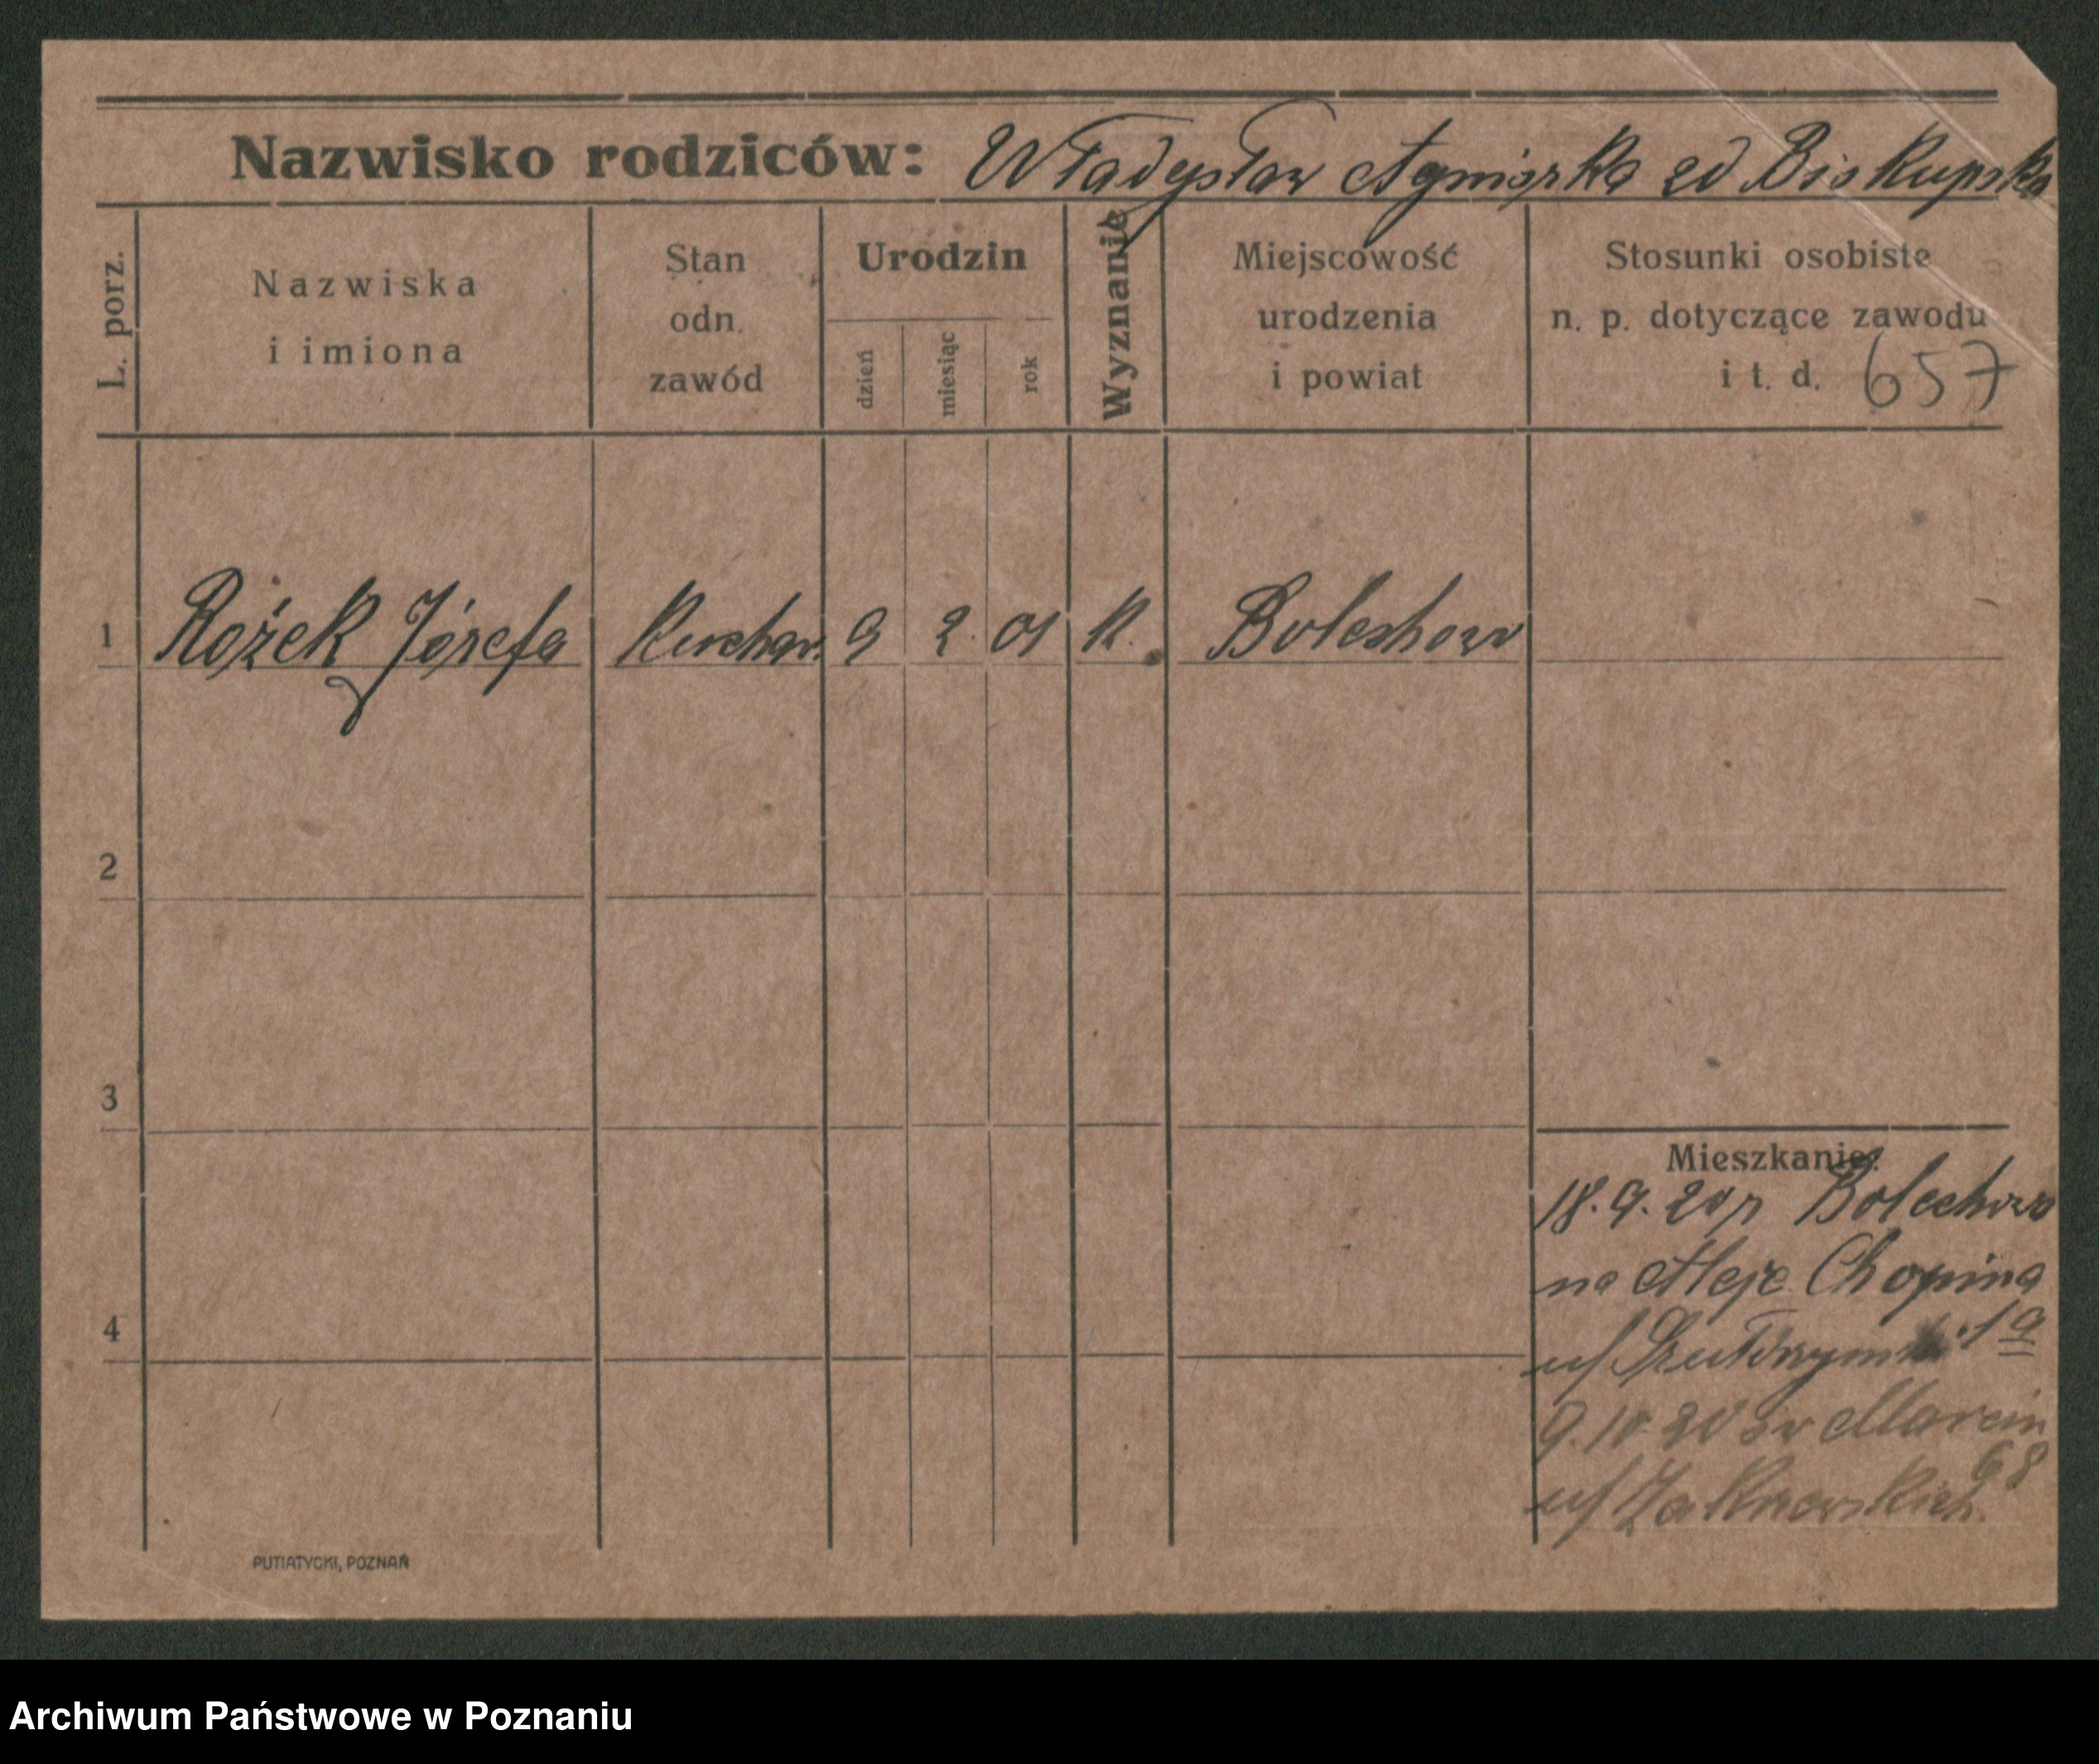 Nazwisko rodziców: Władysław Agnieszka zd Biskupska
L. porz.
Nazwiska i imiona
Stan odn. zawód
Urodzin
dzień
miesiąc
rok
Wyznanie
Miejscowość urodzenia i powiat
Stosunki osobiste n. p. dotyczące zawodu i t. d. 657
1 Rożek Józefa Kuchar. 9 2. 01 K. Bolechowo
2
3
4
Mieszkanie:
18.9.20 z Bolechowo
na Aleje Chopina
u/ 1a
9.10 20 św Marcin
68
u/ Zakrzewskich.
PUTIATYCKI, POZNAŃ
Archiwum Państwowe w Poznaniu